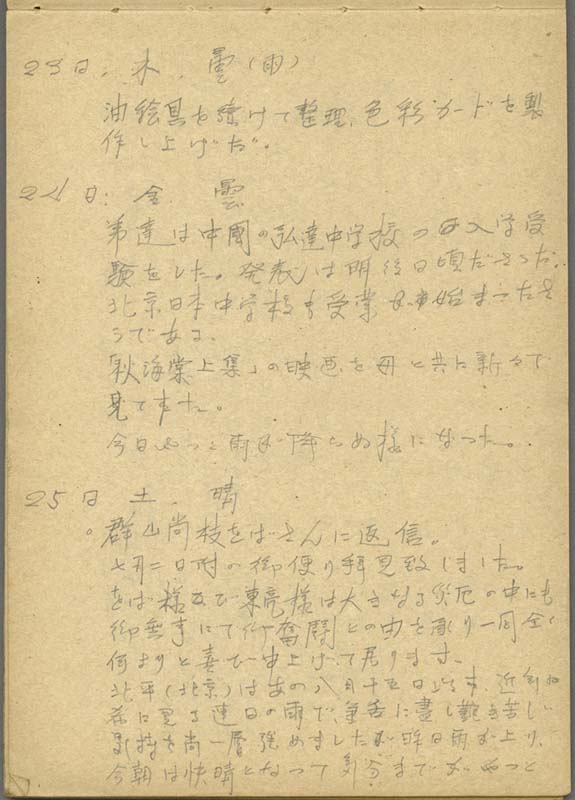 23日. 木. 曇(雨)
油絵具を続けて整理、色彩カードを製
作し上げた。
24日. 金. 曇
弟達は中國の弘達中学校の 入学受
験をした。発表は明後日頃ださうだ。
北京日本中学校も受業 始まったさ
うである。
「秋海棠上集」の映画を母と共に新々で
見て来た。
今日やっと雨が降らぬ様になった。
25日 土. 晴
。群山尚枝をばさんに返信。
七月二日附の御便り拝見致しました。
をば様及び東亮様は大きなる災厄の中にも
御無事にて御奮闘との由を承り一同全く
何よりと喜び申上げて居ります。
北平(北京)はあの八月十五日 近年
希に見る連日の雨で、筆舌に盡し難き苦しい
氣持を尚一層強めましたが昨日雨が上り、
今朝は快晴となって氣分までがやっと